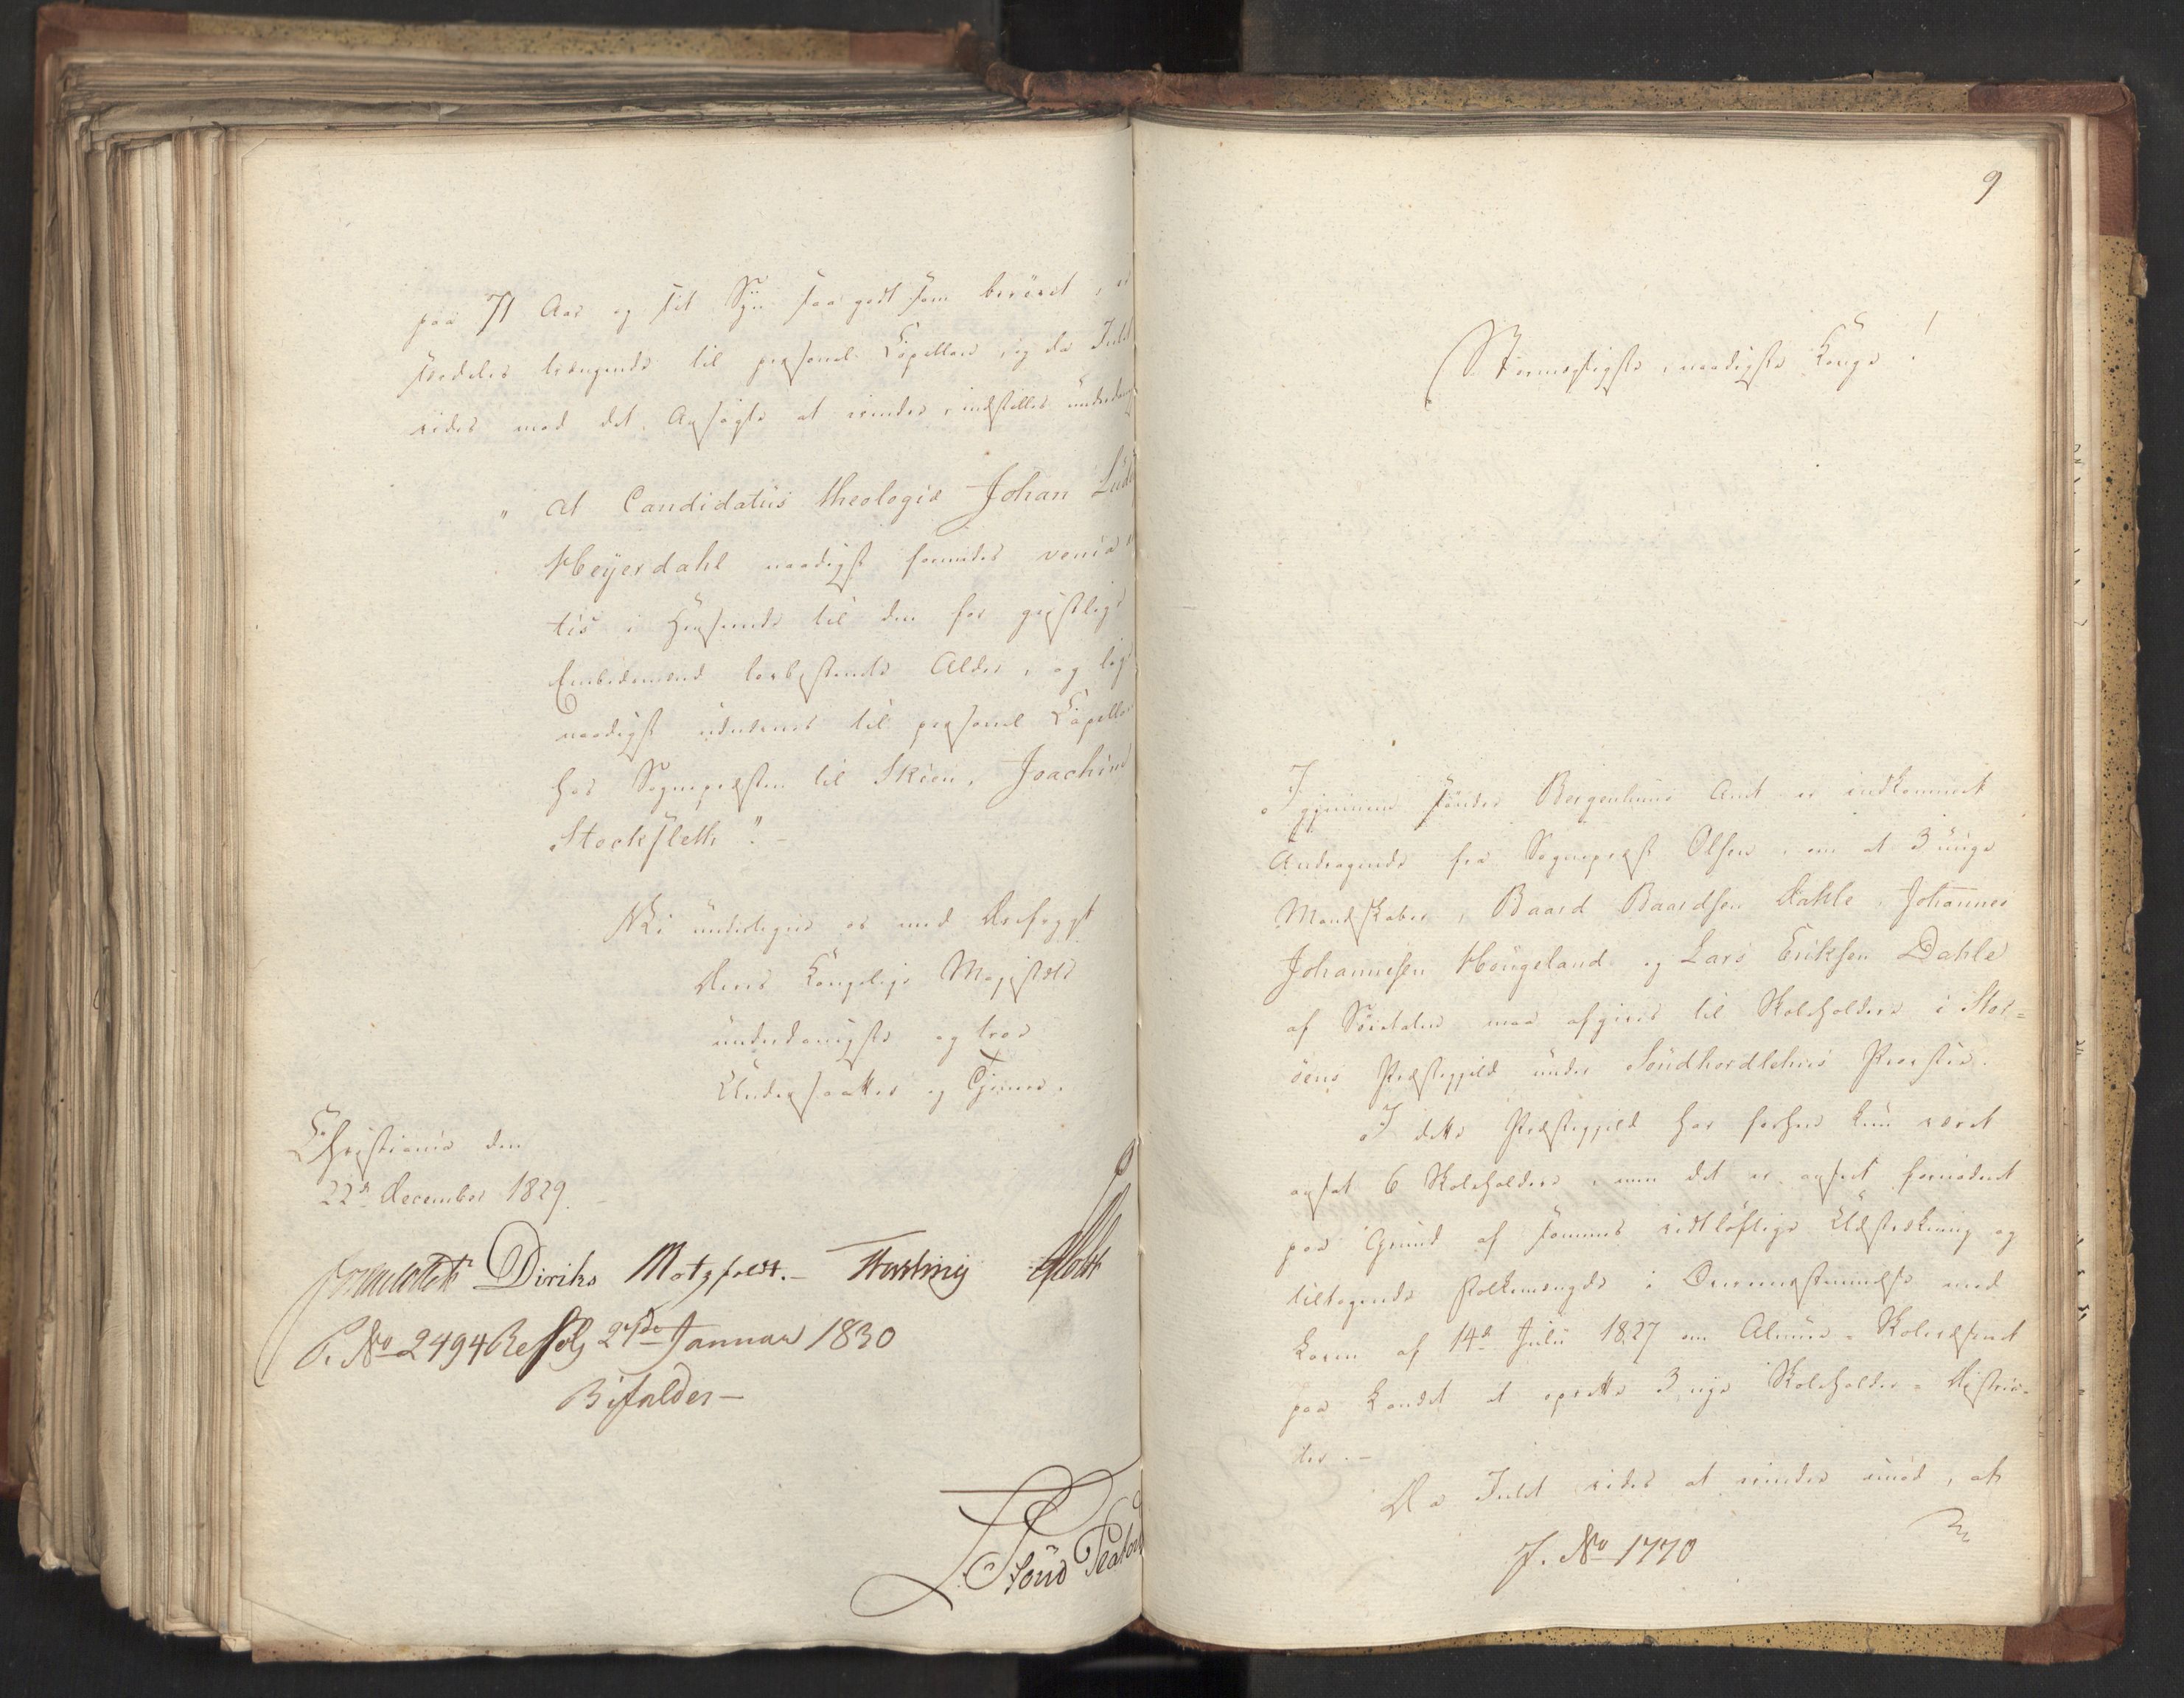 paa 71 Aar og sit Syn saa godt som berövet, er
saaledes trængende til personel Capellan, og da Intet
vides mod det Ansögte at erindre, indstilles underdanigst
"at Candidatus theologiæ Johan
Heyerdahl naadigst forundes venia
tis i Henseende til den for geistlige
Embedsmænd lovbestemte Alder, og
naadigst udnævnes til personel Capellan
hos Sognepræsten til Skien, Joachim
Stockfleth". -
Vi undertegne os med Ærefrygt
Deres Kongelige Majestæts
underdanigste og troe
Undersaatter og Tjenere.
Christiania den
22de December 1829.
Diriks Motzfeldt. -
P. No 2494 Resol 27de Januar 1830
Bifaldes -
9
Stormægtigste, naadigste Konge!
Igjennem söndre Bergenhuus Amt er indkommet
Andragende fra Sognepræst Olsen, om at 3 unge
Mandskaber, Baard Baardsen Dahle, Johannes
Johannesen Hougeland og Lars Eriksen Dahle
af Söedalen maa afgives til Skoleholdere i Stor=
öens Præstegjeld under Söndhordlehns Provstie.
I dette Præstegjeld har forhen kun været
ansat 6 Skoleholdere, men det er anseet fornödent
paa Grund af sammes vidtlöftige Udstrækning og
tiltagende Folkemængde i Overensstemmelse med
Loven af 14de Julii 1827 om Almue-Skolevæsenet
paa Landet at oprette 3 nye Skoleholder-Distric-
ter. -
Da Intet vides at erindre imod, at
J. No 1770